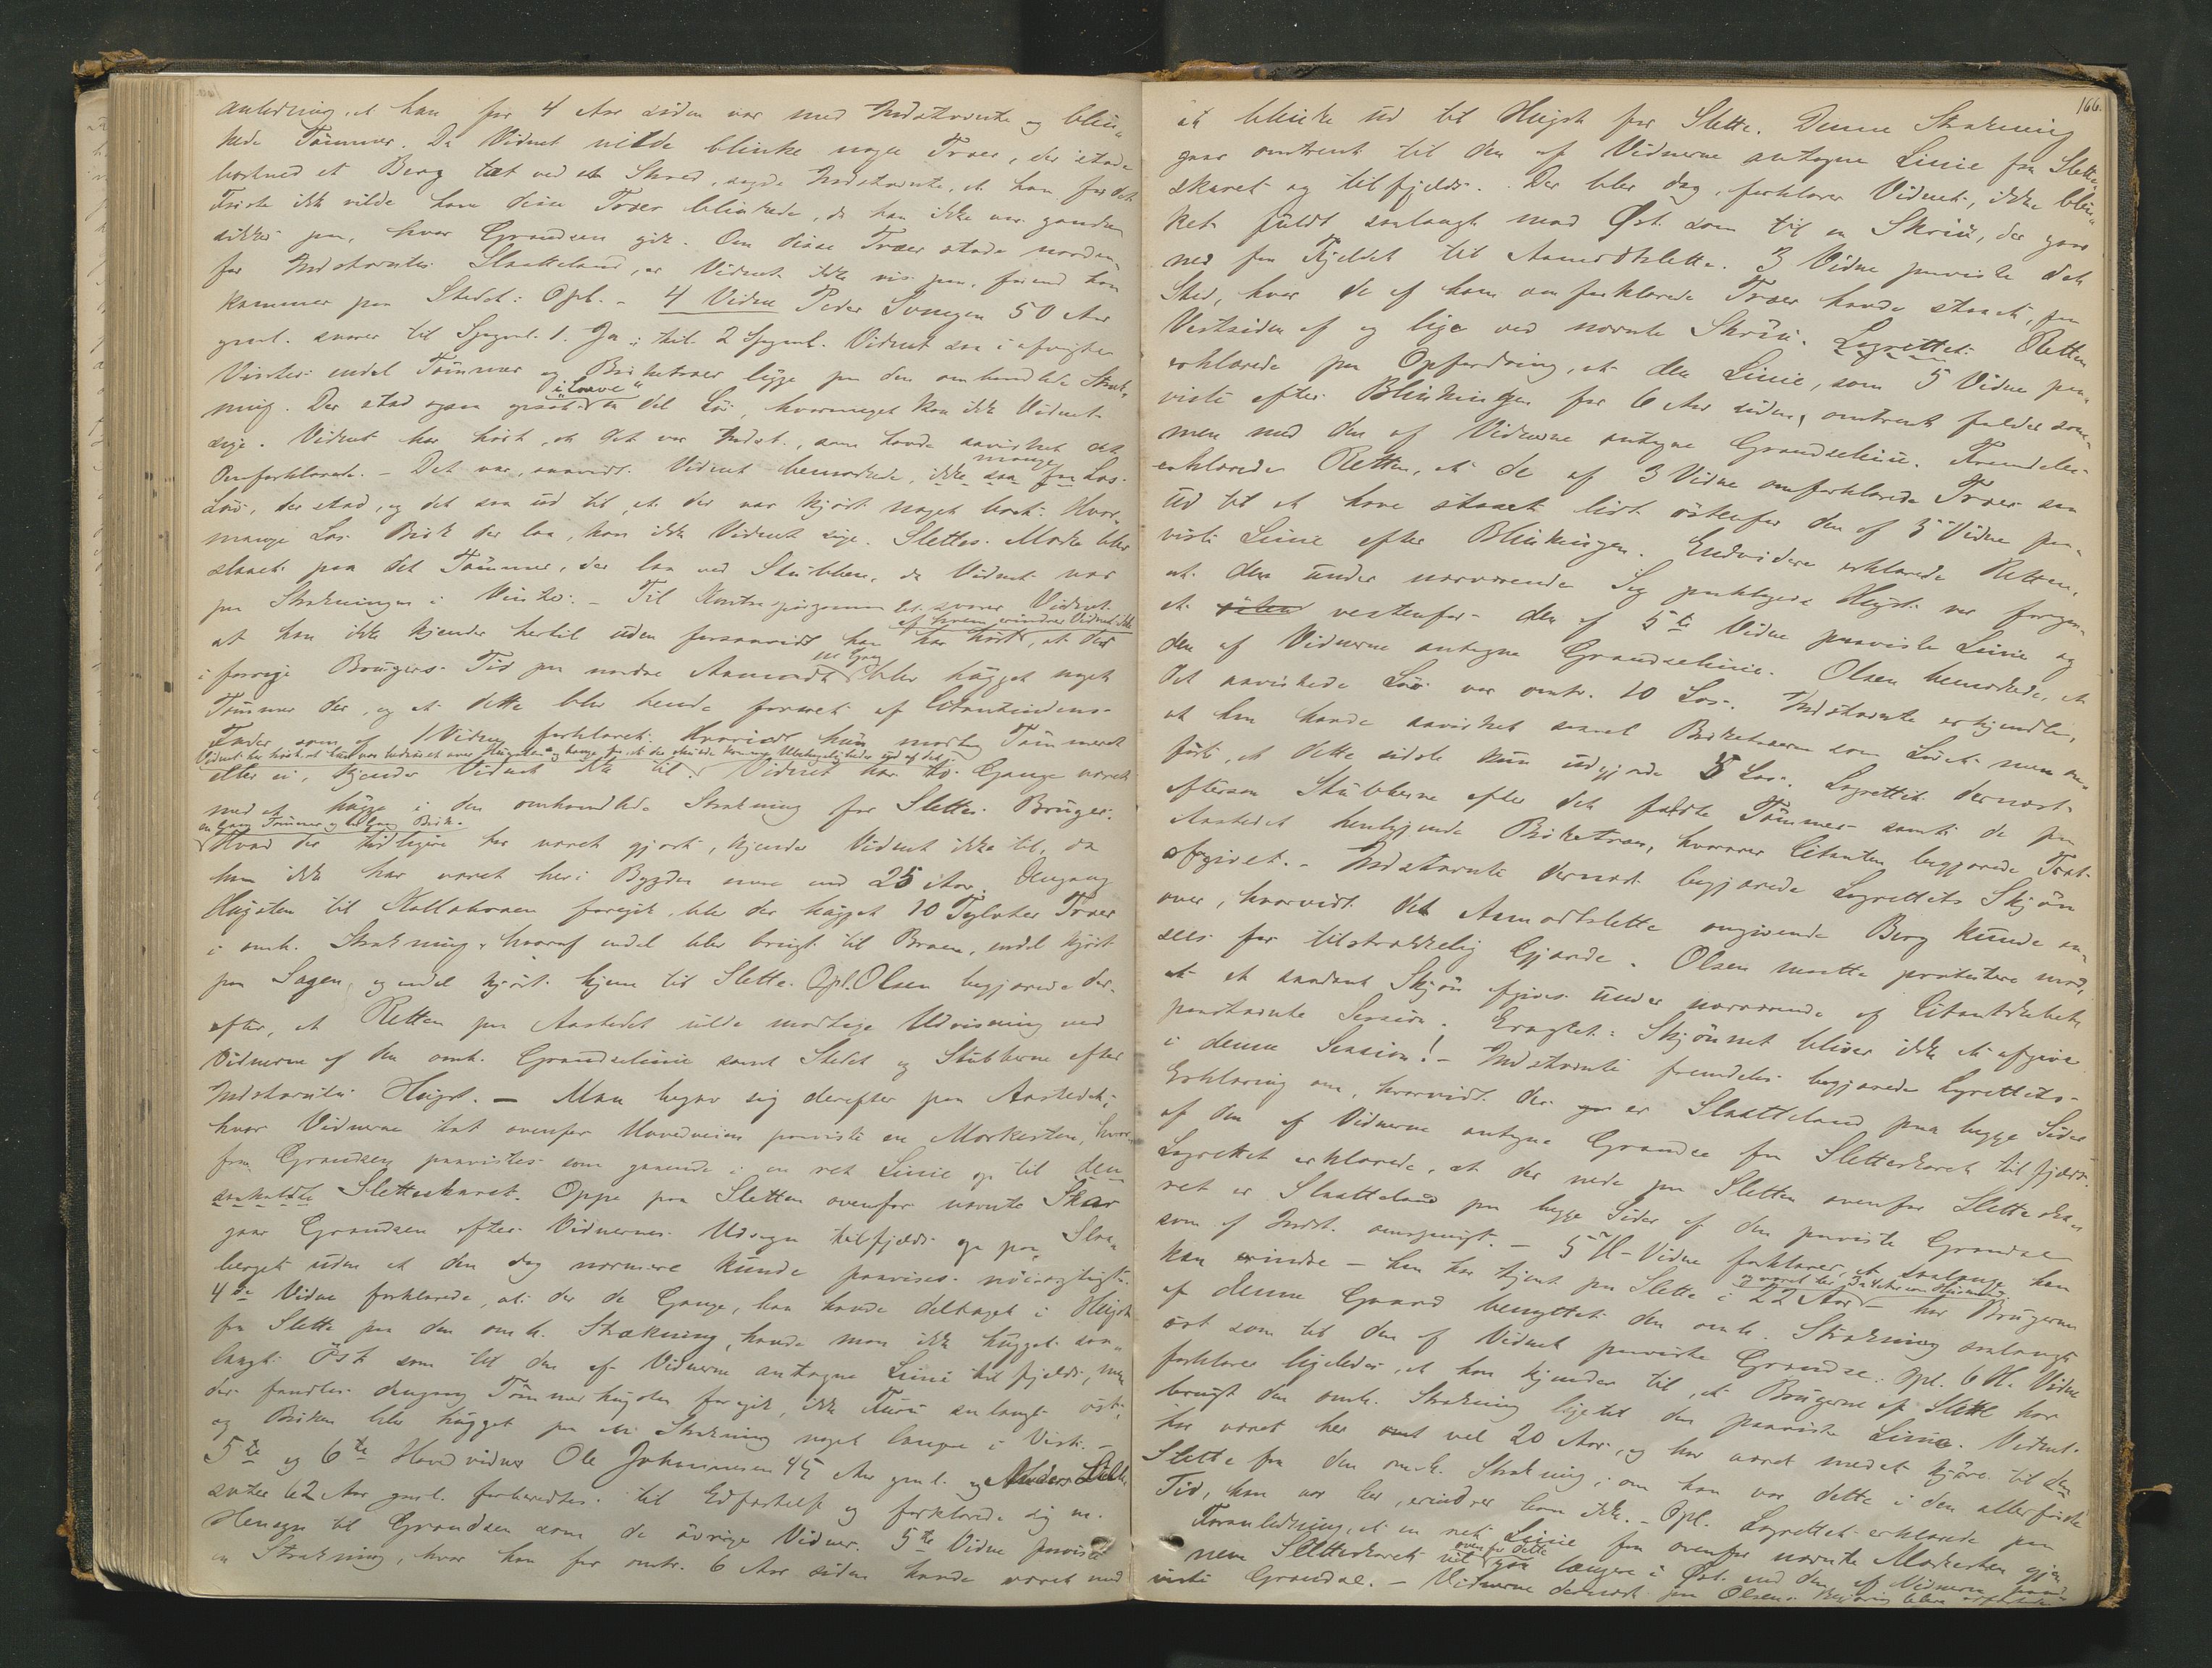 anledning, at han for 4 Aar siden var med Indstævnte og blin-
kede Tømmer. Da Vidnet vilde blinke nogle Træer, der stode
bortved et Berg tæt ved et Skred, sagde Indstævnte, at han for det
Første ikke vilde have disse Træer blinkede, da han ikke var ganske
sikker paa, hvor Grændsen gik. Om disse Træer stode norden-
for Indstævntes Slaatteland, er Vidnet ikke vis paa, førend han
kommer paa Stedet: Opl. - 4 Vidne Peder Svingen 50 Aar
gml. svarer til Spgml. 1. Ja; til 2 Spgml. Vidnet saa i afvigte
Vinter endel Tømmer og Birketræer ligge paa den omhandlede Stræk-
ning. Der stod ogsaa opsat "i Lave" en Del Løv, hvormeget kan ikke Vidnet
sige. Vidnet har hørt, at det var Indst., som havde aavirket det
Omforklarede. - Det var, saavidt Vidnet bemærkede, ikke saa mange Las
Løv, der stod, og det saa ud til, at der var kjørt noget bort. Hvor-
mange Las Birk der laa, kan ikke Vidnet sige. Slettes Mærke blev
slaaet paa det Tømmer, der laa ved Stubben, da Vidnet var
paa Strækningen i Vinter. - Til Kontraspørgsmaalet svarer Vidnet
at han ikke kjender hertil uden forsaavidt han har hørt, af hvem erindrer Vidnet ikke, at der
i forrige Brugers Tid paa nordre Aamodt en Gang blev hugget noget
Tømmer der, og at dette blev hende formeent af Citantindens
Fader som af 1 Vidne forklaret. Hvorvidt hun modtog Tømmeret
eller ei, kjender Vidnet ikke til. Vidnet har to Gange været
med at hugge i den omhandlede Strækning for Slettes Bruger,
en Gang Tømmer og en Gang Birk.
Hvad der tidligere har været gjort, kjender Vidnet ikke til, da
han ikke har været her i Bygden mere end 25 Aar. Dengang
Hugsten til Kollabraaen foregik, blev der hugget 10 Tylvter Træer
i omh. Strækning, hvoraf endel blev bragt til Braaen, endel kjørt
paa Sagen, og endel kjørt hjem til Slette. Opl. Olsen begjærede der-
efter, at Retten paa Aastedet vilde modtage Udvisning ved
Vidnerne af den omh. Grændselinie samt Stedet og Stubberne efter
Indstævntes Hugst. - Man begav sig derefter paa Aastedet,
hvor Vidnerne tæt ovenfor Hovedveien paaviste en Merkesten, hvor-
fra Grændsen paavistes som gaaende i en ret Linie op til den
saakaldte Sletteskaret. Oppe paa Sletten ovenfor nævnte Skar
gaar Grændsen efter Vidnernes Udsagn tilfjelds op paa Slaa-
berget uden at den dog nærmere kunde paavises nøiagtigt.
4de Vidne forklarede, at der de Gange, han havde deltaget i Hugst
for Slette paa den omh. Strækning, havde man ikke hugget saa-
langt Øst som til den af Vidnerne antagne Linie tilfjelds, men
der fandtes dengang Tømmerhugsten foregik, ikke Furu saalangt øst,
og Birken blev hugget paa en Strækning noget længere i Vest. -
5te og 6te Hovedvidner Ole Johannesen 45 Aar gml. og Anders Slette-
sæter 62 Aar gml. forberedtes til Edfæstelse og forklarede sig m.
Hensyn til Grændsen som de øvrige Vidner. 5te Vidne paaviste
en Strækning, hvor han for omtr. 6 Aar siden havde været med
166.
at blinke ud til Hugst for Slette. Denne Strækning
gaar omtrent til den af Vidnerne antagne Linie fra Slette-
skaret og tilfjelds. Der blev dog, forklarer Vidnet, ikke blin-
ket fuldt saalangt mod Øst som til en Skriu, der gaar
ned fra Fjeldet til Aamodtslette. 3 Vidne paaviste det
Sted, hvor de af ham omforklarede Træer havde staaet, paa
Vestsiden af og lige ved nævnte Skriu. Lagrettet: Retten
erklærede paa Opfordring, at den Linie, som 5 Vidne paa-
viste efter Blinkningen for 6 Aar siden, omtrent falder sam-
men med den af Vidnerne antagne Grændselinie. Fremdeles
erklærede Retten, at de af 3 Vidne omforklarede Træer saa
ud til at have staaet lidt østenfor den af 5 Vidne paa-
viste Linie efter Blinkningen. Endvidere erklærede Retten,
at den under nærværende Sag paaklagede Hugst var foregaa-
et vestenfor den af 5te Vidne paaviste Linie og
den af Vidnerne antagne Grændselinie. Olsen bemærkede, at
det aavirkede Løv var omtr. 10 Las. Indstævnte erkjendte,
at han havde aavirket saavel Birketræerne som Løvet men an-
førte, at dette sidste kun udgjorde 5 Las. Lagrettet dernæst
eftersaa Stubberne efter det fældte Tømmer samt de paa
Aastedet henliggende Birketræer, hvorover Citanten begjærede Taxt
afgivet. - Indstævnte dernæst begjærede Lagrettets Skjøn
over, hvorvidt det Aamodtslette omgivende Berg kunde an-
sees for tilstrækkelig Gjærde. Olsen maatte protestere mod,
at et saadant Skjøn afgives under nærværende af Citantskabet
paastævnte Session. Eragtet: Skjønnet bliver ikke at afgive
i denne Session! - Indstævnte fremdeles begjærede Lagrettets
Erklæring om, hvorvidt der er Slaatteland paa begge Sider
af den af Vidnerne antagne Grændse fra Sletteskaret tilfjælds.
Lagrettet erklærede, at der nede paa Sletten ovenfor Sletteska-
ret er Slaatteland paa begge Sider af den paaviste Grændse
som af Indst. omspurgt. - 5 H-Vidne forklarer, at saalænge han
kan erindre - han har tjent paa Slette i 22 Aar - har Brugerne
af denne Gaard benyttet den omh. Strækning saalangt
øst som til den af Vidnet paaviste Grændse. Opl. 6 H. Vidne
forklarer ligeledes, at han kjender til, at Brugerne af Slette har
brugt den omh. Strækning lige til den paaviste Linie. Vidnet
har været her omt vel 20 Aar, og har været med at kjøre til
Slette fra den omh. Strækning; om han var dette i den allerførste
Tid, han var her, erindrer han ikke. - Opl. Lagrettet erklærede paa
Foranledning, at en ret Linie fra ovenfor nævnte Merkesten gjen-
nem Sletteskaret vil ovenfor dette gaa længere i Øst end den af Vidnerne paa-
viste Grændse. - Vidnerne dernæst paa Olsens Begjæring bleve